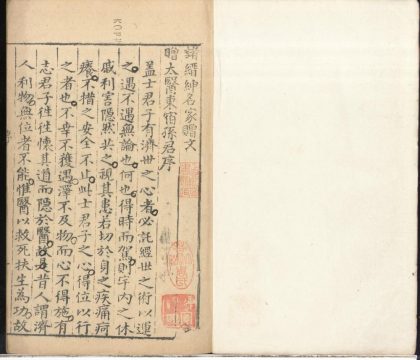 諸縉紳名家贈文
贈太醫東宿孫君序
盖士君子有濟世之心者必託經世之術以運
之遇不遇無論也何也得時而駕則宇內之休
戚利害隱然共之視其患若切於身之疾痛疴
癢不措之安全不止此士君子之心得位以行
之者也不幸不獲遇澤不及物而心不得施有
志君子徃徃懷其道而隱於醫故昔人謂濟
人利物無位者不能惟醫以救死扶生為功故